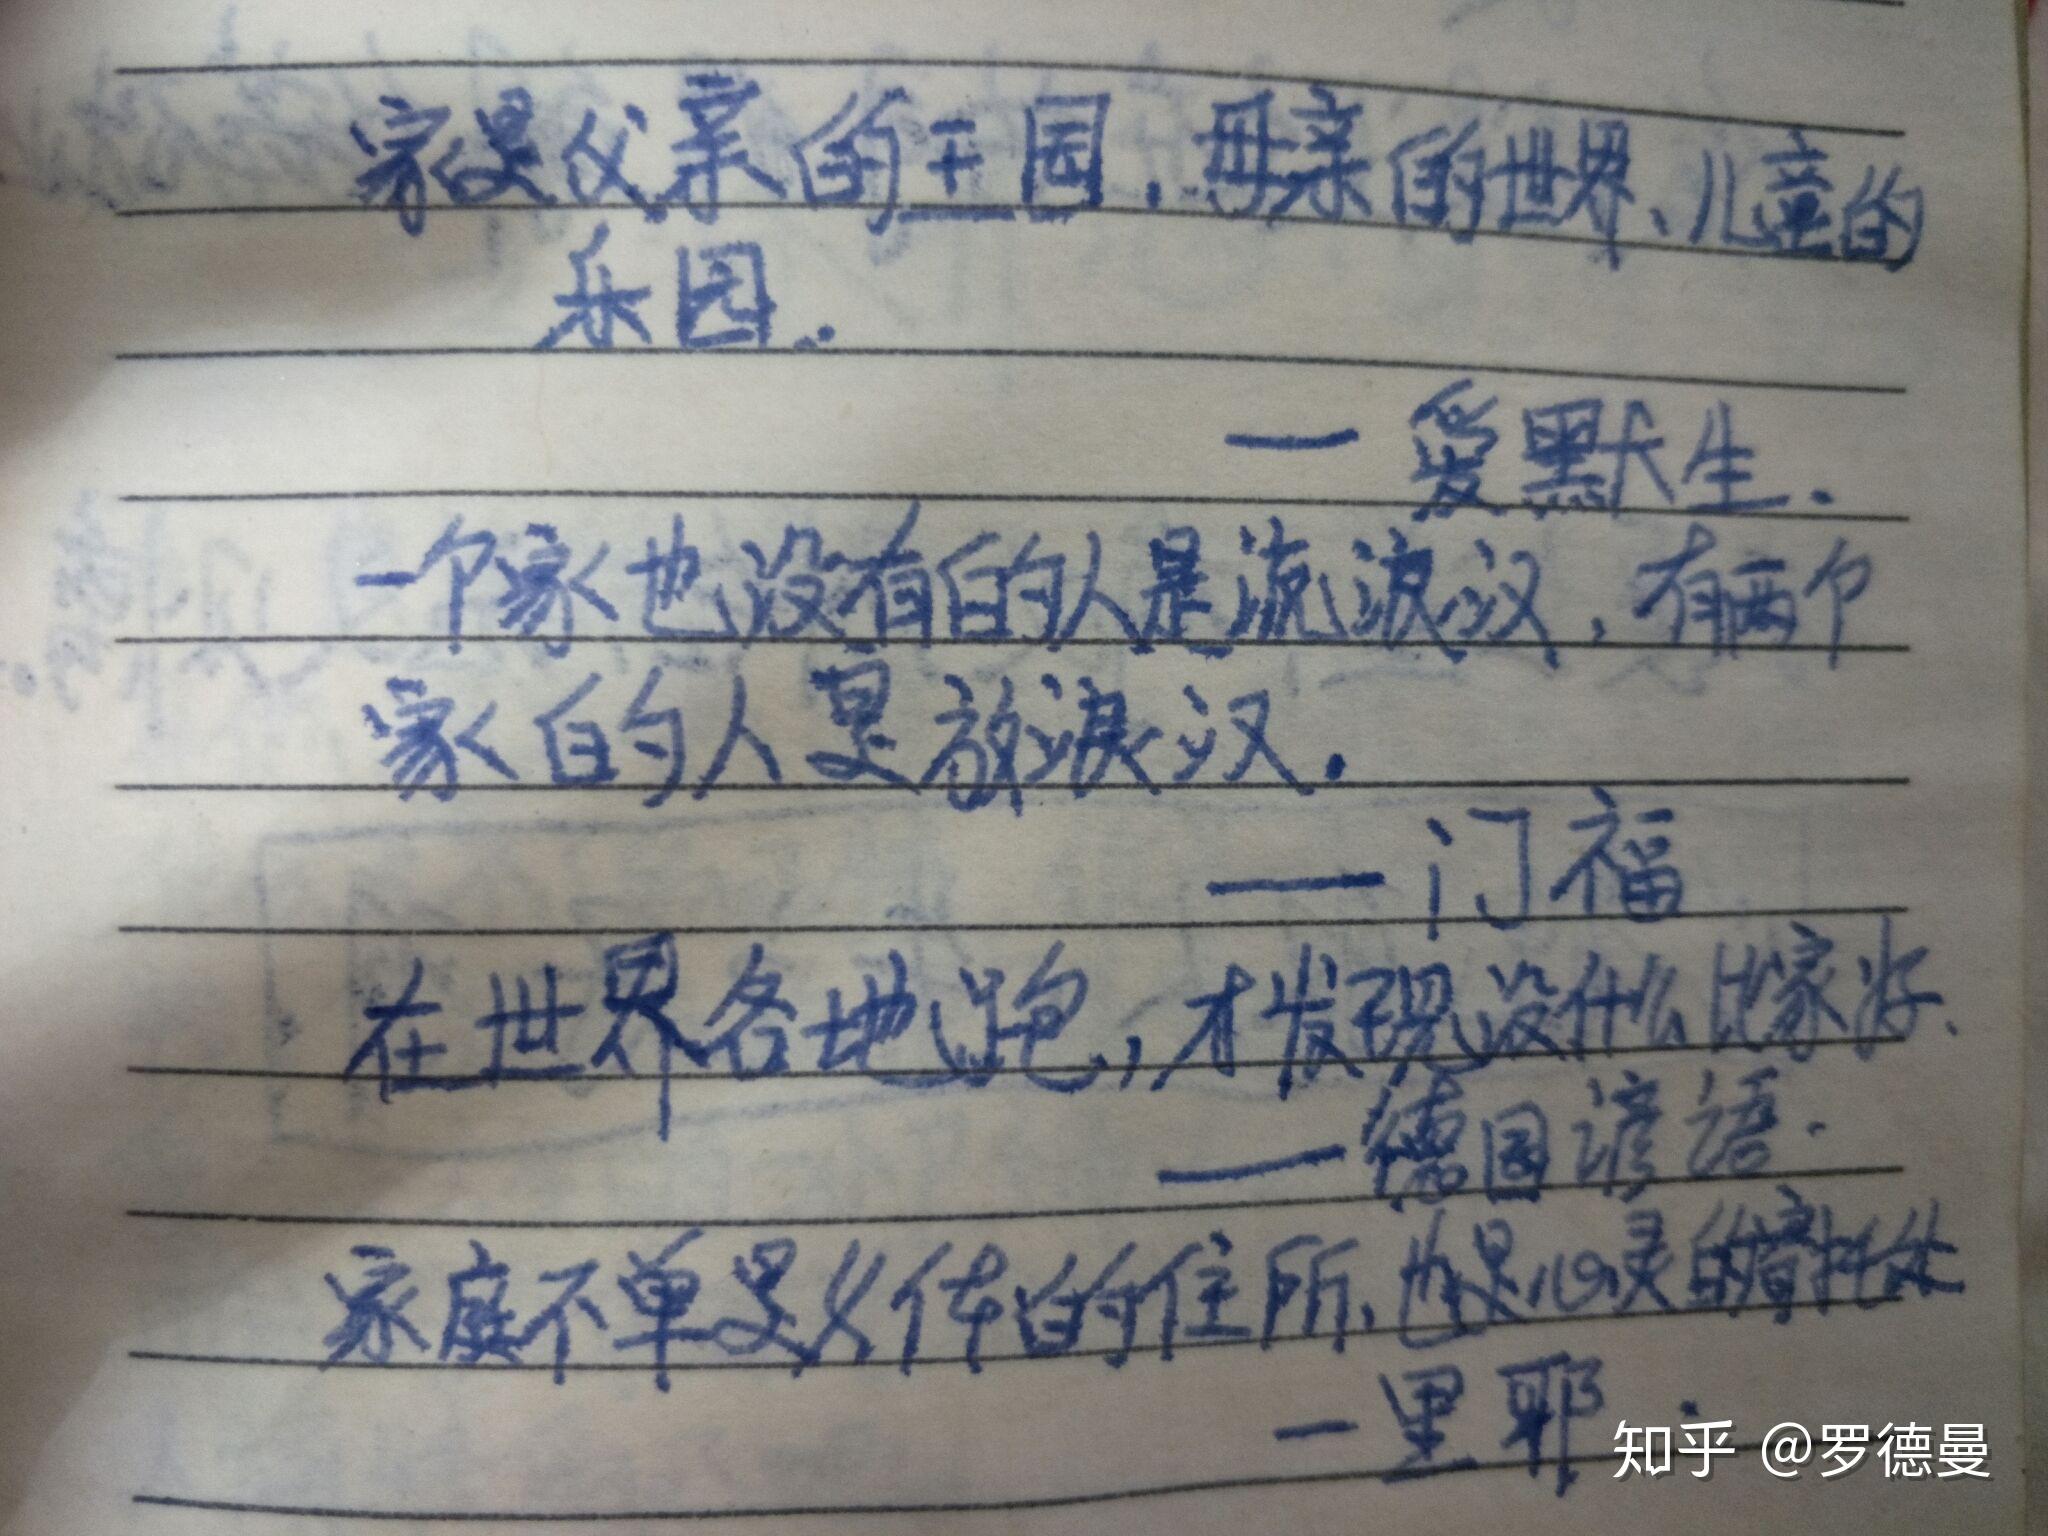 家是父亲的王国,母亲的世界、儿童的
乐园.
— 爱默生.
一个家也没有的人是流浪汉,有两个
家的人是放浪汉.
——门福
在世界各地跑,才发现没什么比家好.
——德国谚语.
家庭不单是身体的住所,也是心灵的寄托处
—里耶.
知乎 @罗德曼